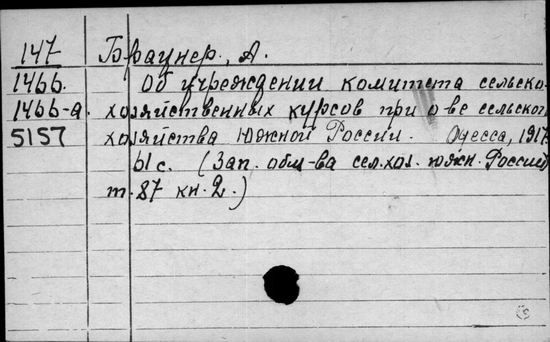 147 Браунер, А.
1466. Об учреждении комитета сельско-
1466-а. хозяйственных курсов при о-ве сельского
5157 хозяйства Южной России. Одесса, 1917.
61 с. (Зап. общ-ва сел.хоз. южн. России,
т. 87 кн. 2.)